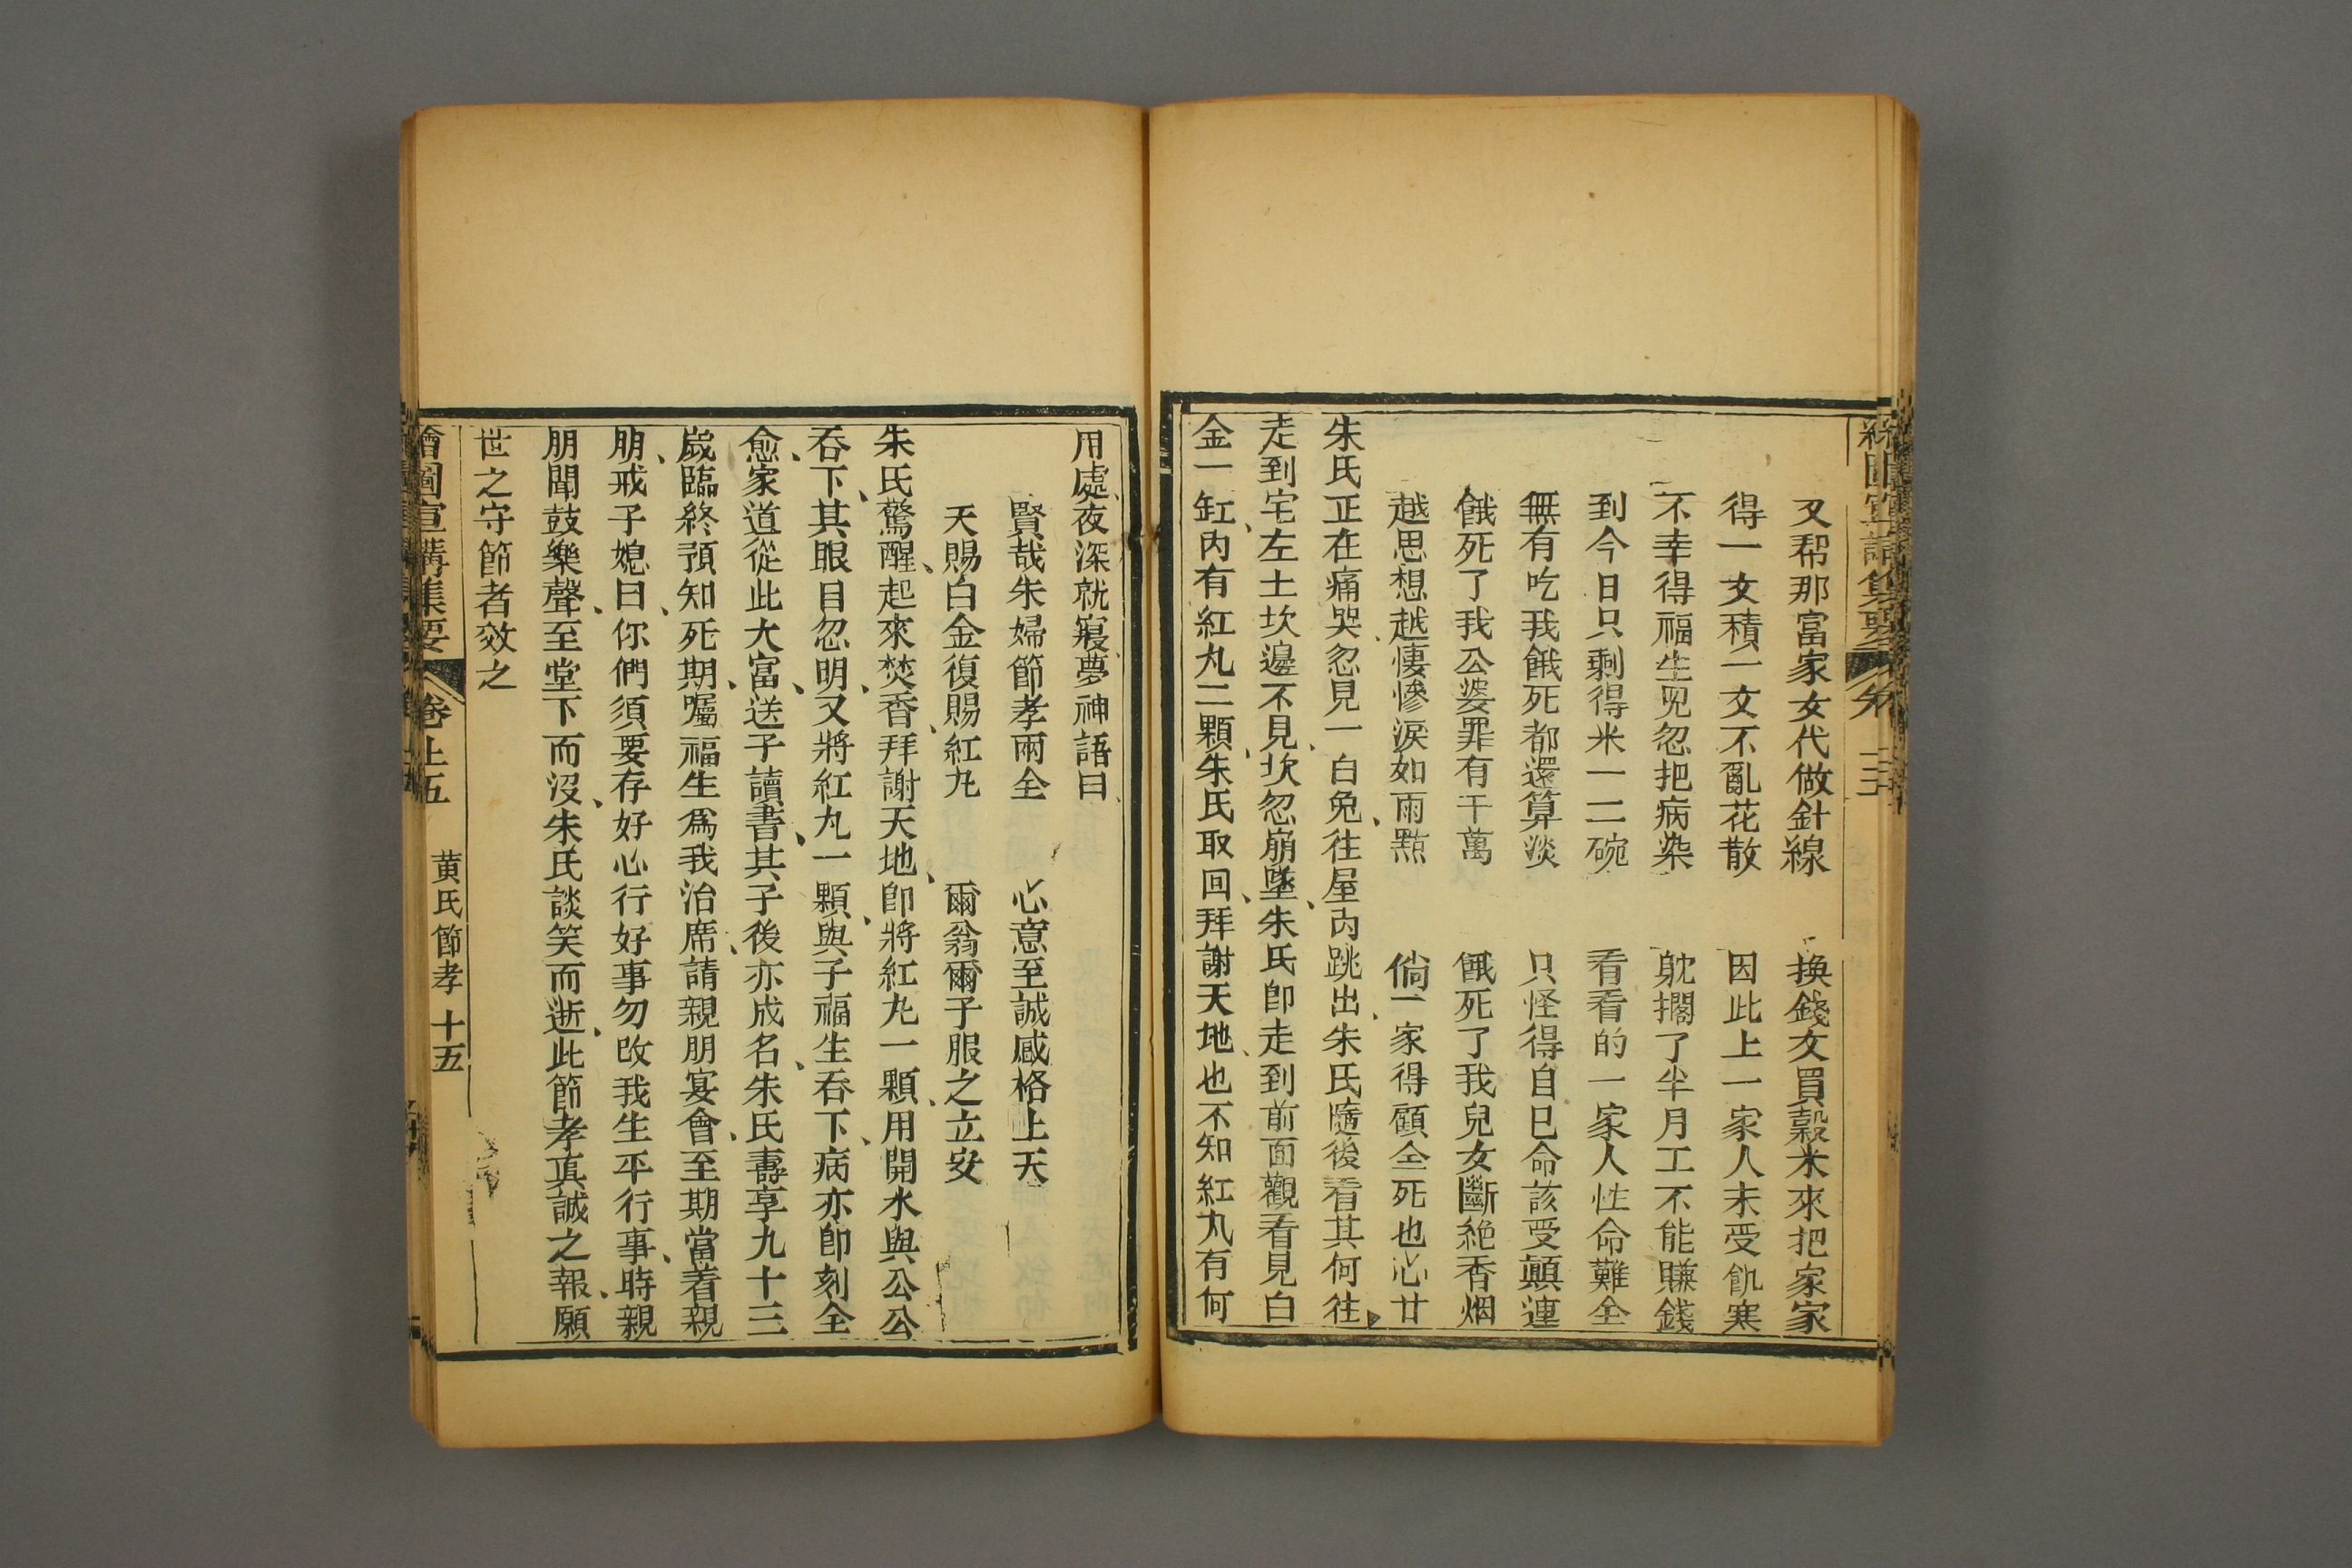 又帮那富家女代做針線　換錢文買穀米來把家家
得一文積一文不亂花散　因此上一家人未受飢寒
不幸得福生兒忽把病染　躭擱了半月工不能賺錢
到今日只剩得米一二碗　看看的一家人性命難全
無有吃我餓死都還算淡　只怪得自巳命該受顛連
餓死了我公婆罪有千萬　餓死了我兒女斷絶香烟
越思想越悽慘淚如雨點　倘一家得顧全死也心甘
朱氏正在痛哭、忽見一白兔、往屋內跳出、朱氏隨後看其何往
走到宅左土坎邊不見、坎忽崩墜、朱氏卽走到前面觀看見白
金一缸、內有紅丸二顆、朱氏取回、拜謝天地、也不知紅丸有何
用處、夜深就寢、夢神語曰、
賢哉朱婦節孝兩全　心意至誠感格上天
天賜白金復賜紅丸　爾翁爾子服之立安
朱氏驚醒、起來焚香、拜謝天地、卽將紅丸一顆、用開水與公公
吞下、其眼目忽明、又將紅丸一顆、與子福生吞下、病亦卽刻全
愈、家道從此大富、送子讀書、其子後亦成名、朱氏壽享九十三
歲、臨終預知死期、囑福生爲我治席、請親朋宴會、至期當着親
朋、戒子媳曰、你們須要存好心行好事勿改我生平行事、時親
朋聞鼓樂聲、至堂下而沒、朱氏談笑而逝、此節孝真誠之報、願
世之守節者效之
繪圖宣講集要　卷上五　黄氏節孝　十五